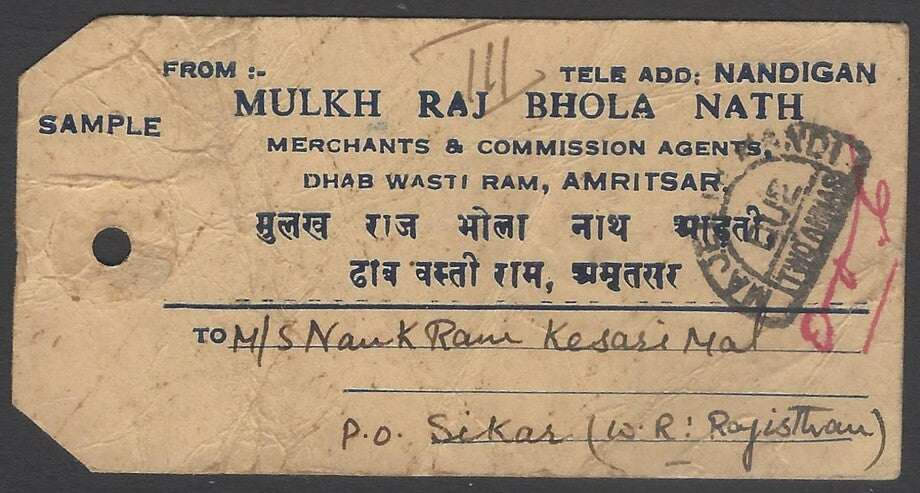 FROM :- TELE ADD: NANDIGAN
SAMPLE
MULKH RAJ BHOLA NATH
MERCHANTS & COMMISSION AGENTS,
DHAB WASTI RAM, AMRITSAR,
मुलख राज भोला नाथ आढ़ती
ढाब वस्ती राम, अमृतसर
TO M/S Nank Ram Kesari Mal
P.O. Sikar (W.R: Rajisthan)
MANDI
TWO ANNAS